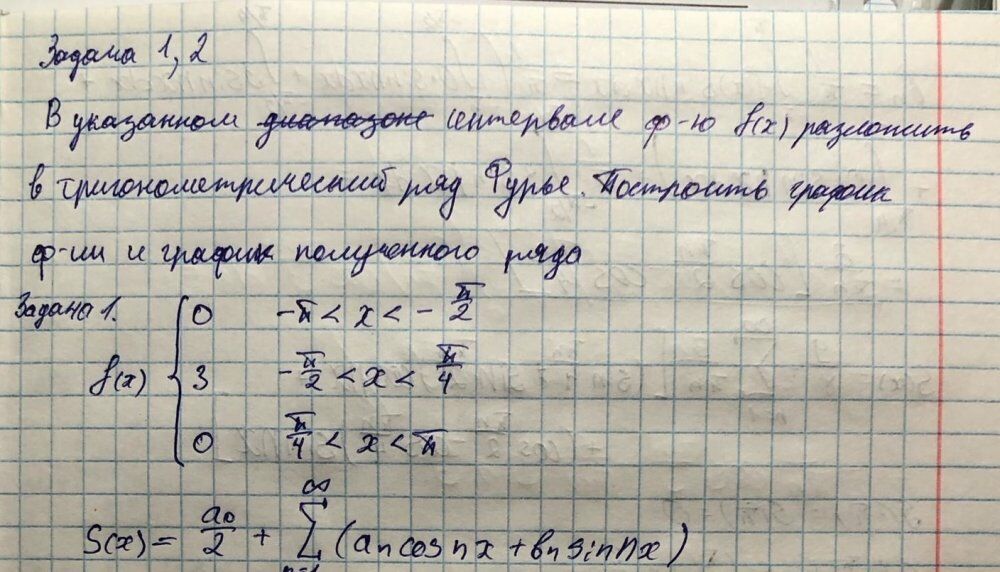 Задача 1,2
В указанном диапазоне интервале ф-ю f(x) разложить
в тригонометрический ряд Фурье. Построить график
ф-ии и график полученного ряда
Задача 1.
0 -π < x < -π/2
f(x) { 3 -π/2 < x < π/4
0 π/4 < x < π
S(x) = a₀/2 + ∑ₙ₌₁^∞ (aₙ cos nx + bₙ sin nx)